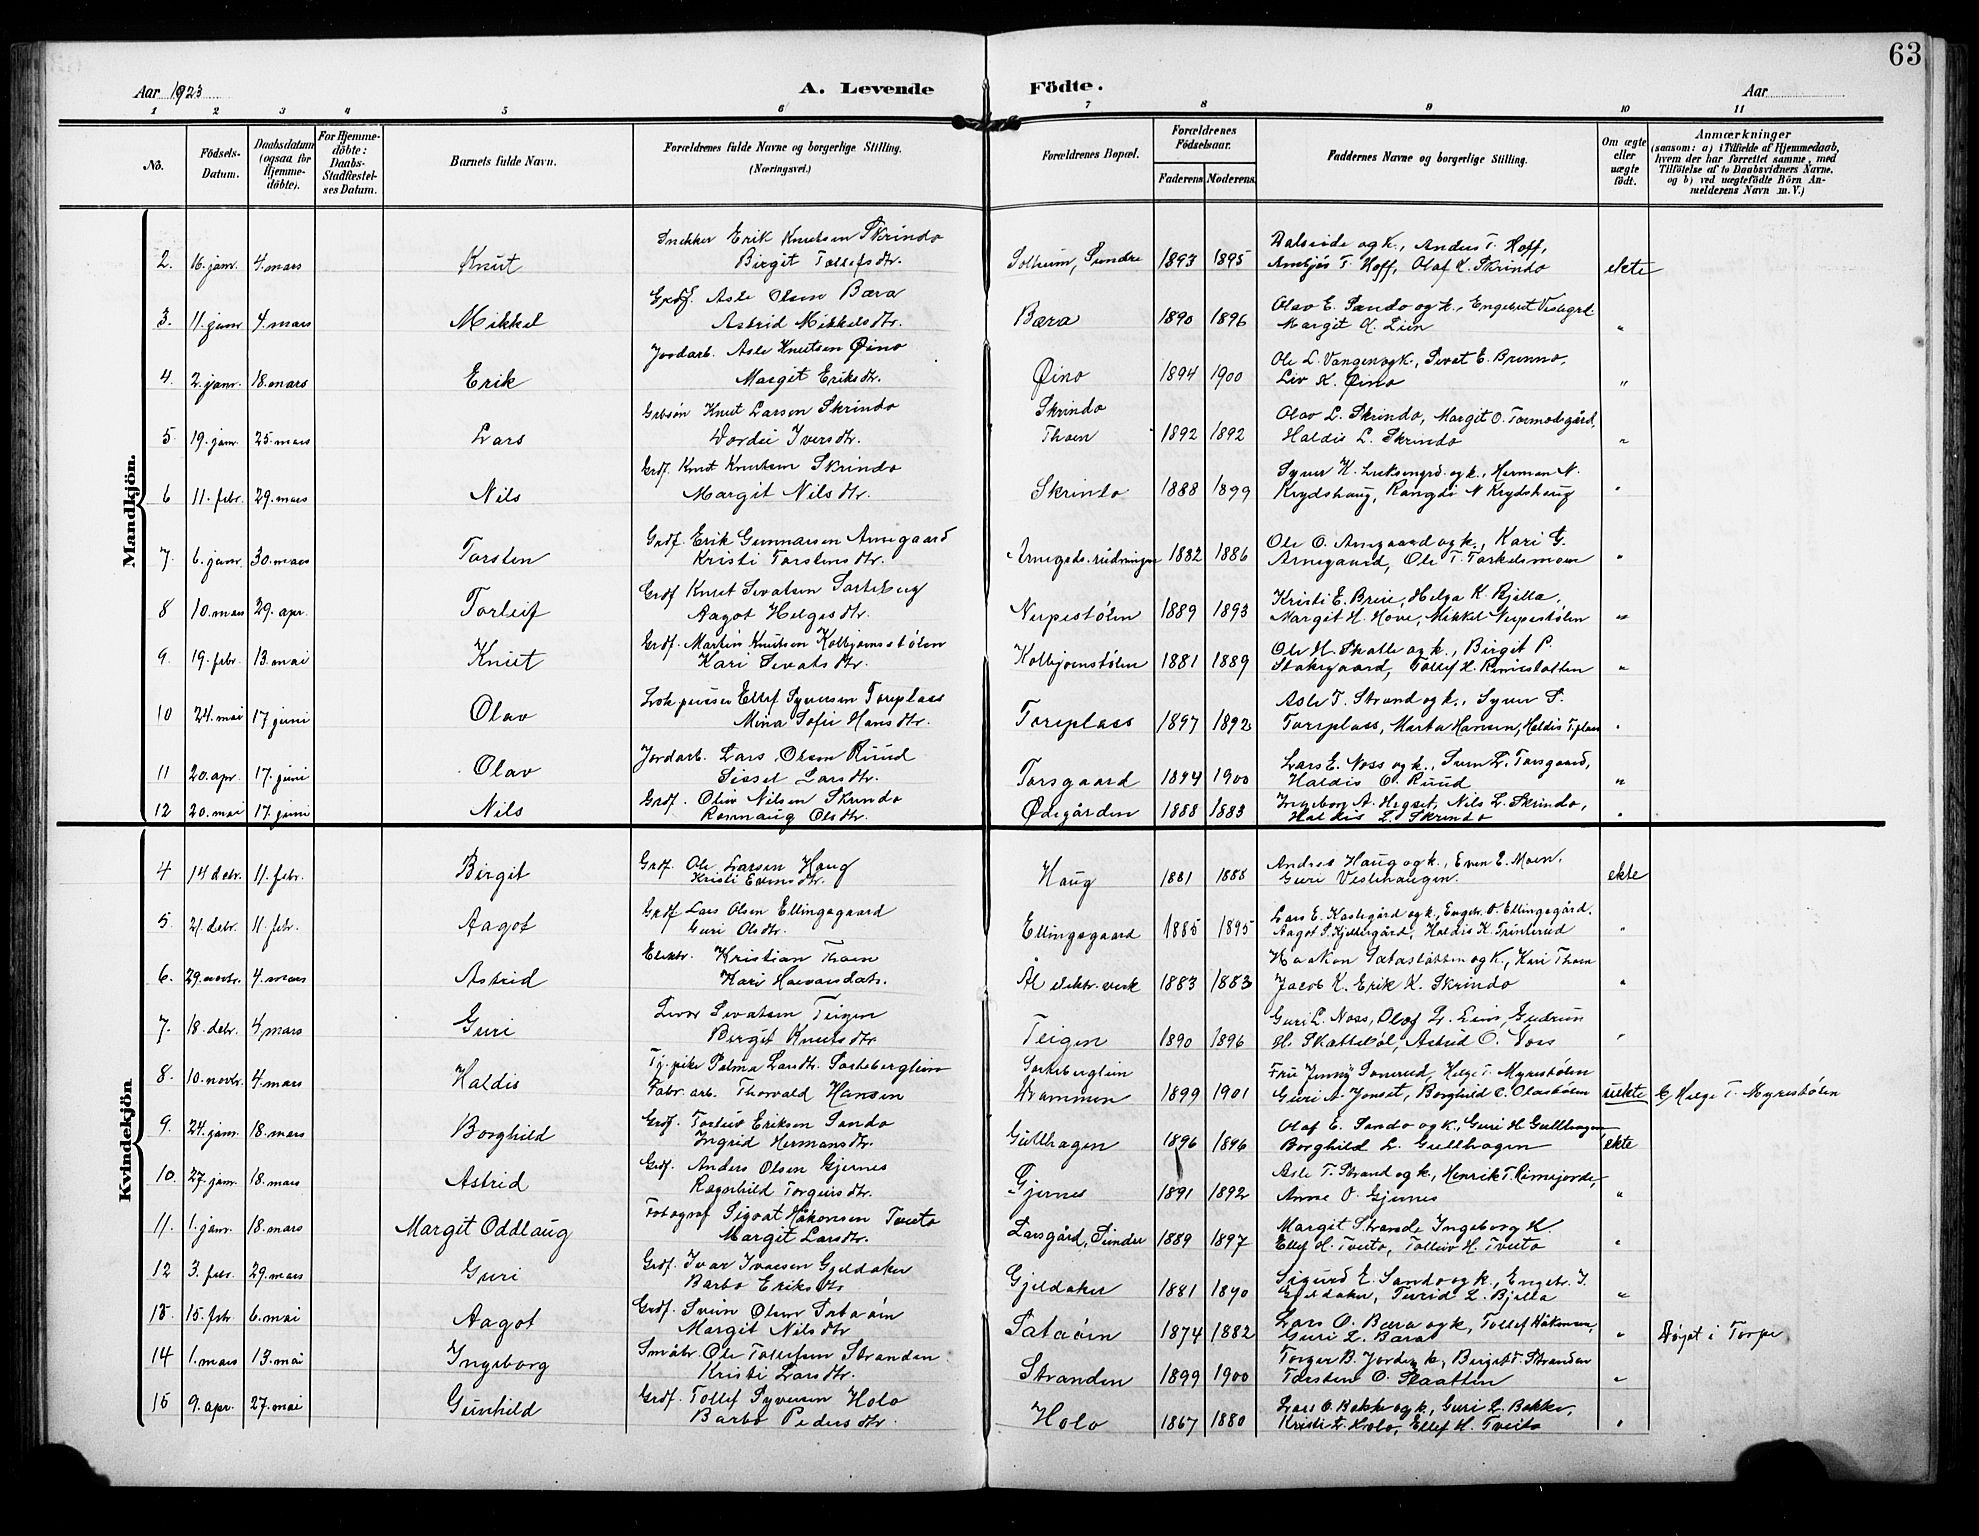 63
Aar 1923 A. Levende Födte. Aar
1 2 3 4 5 6 7 8 9 10 11
No. Födsels-Datum. Daabsdatum (ogsaa for Hjemme-döbte). For Hjemme-döbte: Daabs-Stadfæstel-ses Datum. Barnets fulde Navn. Forældrenes fulde Navne og borgerlige Stilling. (Næringsvei.) Forældrenes Bopæl. Forældrenes Födselsaar. Faderens. Moderens. Faddernes Navne og borgerlige Stilling. Om ægte eller uægte födt. Anmærkninger (saasom: a) i Tilfælde af Hjemmedaab, hvem der har forrettet samme, med Tilföielse af to Daabsvidners Navne, og b) ved uægtefödte Börn An-melderens Navn m. V.)
Mandkjön.
Snekker Erik Knutsen Skrindo Dalseide og k., Anders T. Hoff,
2. 16. janr. 4. mars Knut Birgit Tollefsdtr. Solheim, Sundre 1893 1895 T. Hoff, Olaf K. Skrindo ekte
Grdf. Asle Olsen Bæra Olav E. Sando og k., Engebret
3. 11. janr 4. mars Mikkel Astrid Mikkelsdtr. Bæra 1890 1896 Margit K. Lien "
Jordarb. Asle Knutsen Øino Ole L. Vangen og k., Sevat E. Brenno,
4. 2. janr. 18. mars Erik Margit Eriksdtr. Øino 1894 1900 Liv K. Øino "
Grbsøn Knut Larsen Skrindo Skrindo Olav L. Skrindo, Margit O. Tormodsgård,
5. 19. janr. 25. mars Lars Dordei Iversdtr. Thoen 1892 1892 Haldis L. Skrindo "
Grdf. Knut Knutsen Skrindo Syver K. og k., Herman N.
6 11. febr. 29. mars Nils Margit Nilsdtr. Skrindo 1888 1899 Krydshaug, Rangdi N Krydshaug "
Grdf. Erik Gunnarsen Arnegaard Ole O. Arnegaard og k., Kari G.
7. 6. janr. 30. mars Torsten Kristi Torstensdtr. Arnegårds.rudningen 1882 1886 Arnegaard, Ole T. Torkelsmoen "
Grdf Knut Sevatsen Sorteberg Kristi E. Breie, Helga K. Bjella,
8 10. mars 29. apr. Torleif Aagot Helgesdtr. Nerpestølen 1889 1893 Margit H. Hove, Mikkel Nerpestølen "
Grdf. Martin Knutsen Kolbjornsstølen Ole H. Skatle og k., Birgit P.
9. 19. febr. 13. mai Knut Kari Sevatsdtr. Kolbjornstølen 1881 1889 Stakegaard, Tollef H. "
Ellef Syversen Toreplass Asle T. Strand og k., Syver S.
10 24. mai 17 juni Olav Mina Sofie Hansdtr. Toreplass 1897 1892 Toreplass, Marta Hansen, Haldis T.plass "
Jordarb. Lars Olsen Ruud Lars E. Noss og k., Svein L. Torsgaard,
11 20. apr. 17. juni Olav Sissel Larsdtr. Torsgaard 1894 1900 Haldis O. Ruud "
Grdf. Oliv Nilsen Skrindo Ingeborg A. Hegset, Nils L. Skrindo,
12 20. mai 17. juni Nils Rannaug Olsdtr. Ødegården 1888 1883 Haldis L. Skrindo "
Kvindekjön.
Grdf. Ole Larsen Haug Andres Haug og k., Even E. Moen,
4 14 debr. 11. febr. Birgit Kristi Evensdtr. Haug 1881 1888 Guri Veslehaugen. ekte
Grdf Lars Olsen Ellingsgaard Lars E. Kaslegård og k., Engebr. O. Ellingsgård,
5. 21. debr. 11. febr. Aagot Guri Olsdtr. Ellingsgaard 1885 1895 Aagot S. Kjellergård, Haldis K. Trinterud "
Elektr. Kristian Thoen Haakon og k., Kari Thoen
6. 29. novbr. 4. mars Astrid Kari Halvarsdatr. Ål elektr. verk 1883 1883 Jacob K. Erik K. Skrindo "
Sevatsen Teigen Guri L. Noss, Olaf L. Lein, Gudrun
7. 18. debr. 4 mars Guri Birgit Knutsdtr. Teigen 1890 1896 H. Skattebøl, Astrid O. Voss "
Tj. pike Palma Larsdtr. Sorteberglein Sorteberglein Fru Jenny Sonerud, Helge T. Myrestølen
8. 10. novbr. 4. mars Haldis Fabr. arb. Thorvald Hansen Drammen 1899 1901 Guri A. Jonset, Borghild O. Olastølen uekte b) Helge T. Myrestølen
Grdf. Torleiv Eriksen Sando Olaf E. Sando og k., Guri H Gullhagen
9. 24. janr. 18. mars Borghild Ingrid Hermansdtr. Gullhagen 1896 1896 Borghild L. Gullhagen ekte
Grdf. Anders Olsen Gjernes Asle T. Strand og k., Henrik T. Rimejorde,
10. 27. janr. 18. mars Astrid Ragnhild Torgersdtr. Gjernes 1891 1892 Anne O. Gjernes "
Fotograf Sigvat Håkonsen Tveito Margit Strande Ingeborg H.
11. 1. janr. 18. mars Margit Oddlaug Margit Larsdtr. Larsgård, Sundre 1889 1897 Ellef H. Tveito, Tolleiv H. Tveito "
Grdf. Ivar Ivarsen Gjeldaker Sigurd E. Sando og k., Engebr. I.
12 3. febr. 29. mars Guri Barbo Eriksdtr Gjeldaker 1881 1890 Gjeldaker, Turid L. Bjella "
Grdf. Svein Olsen Sataøin Lars O. Bæra og k., Tollef Håkonsen,
13. 15. febr. 6. mai Aagot Margit Nilsdtr Sataøin 1874 1882 Guri L. Bæra " Døpt i Torpe
Småbr. Ole Tollefsen Stranden Torger B. Jorde og k., Birgit T. Stranden
14 1. mars 13. mai Ingeborg Kristi Larsdtr. Stranden 1899 1900 Torsten O. Slaatten "
Grdf. Tollef Syversen Holo Lars O. Bakke og k., Guri L. Bakke,
15 9. apr. 27. mai Gunhild Barbo Pedersdtr. Holo 1867 1880 Kristi T. Holo, Ellef H. Tveito "